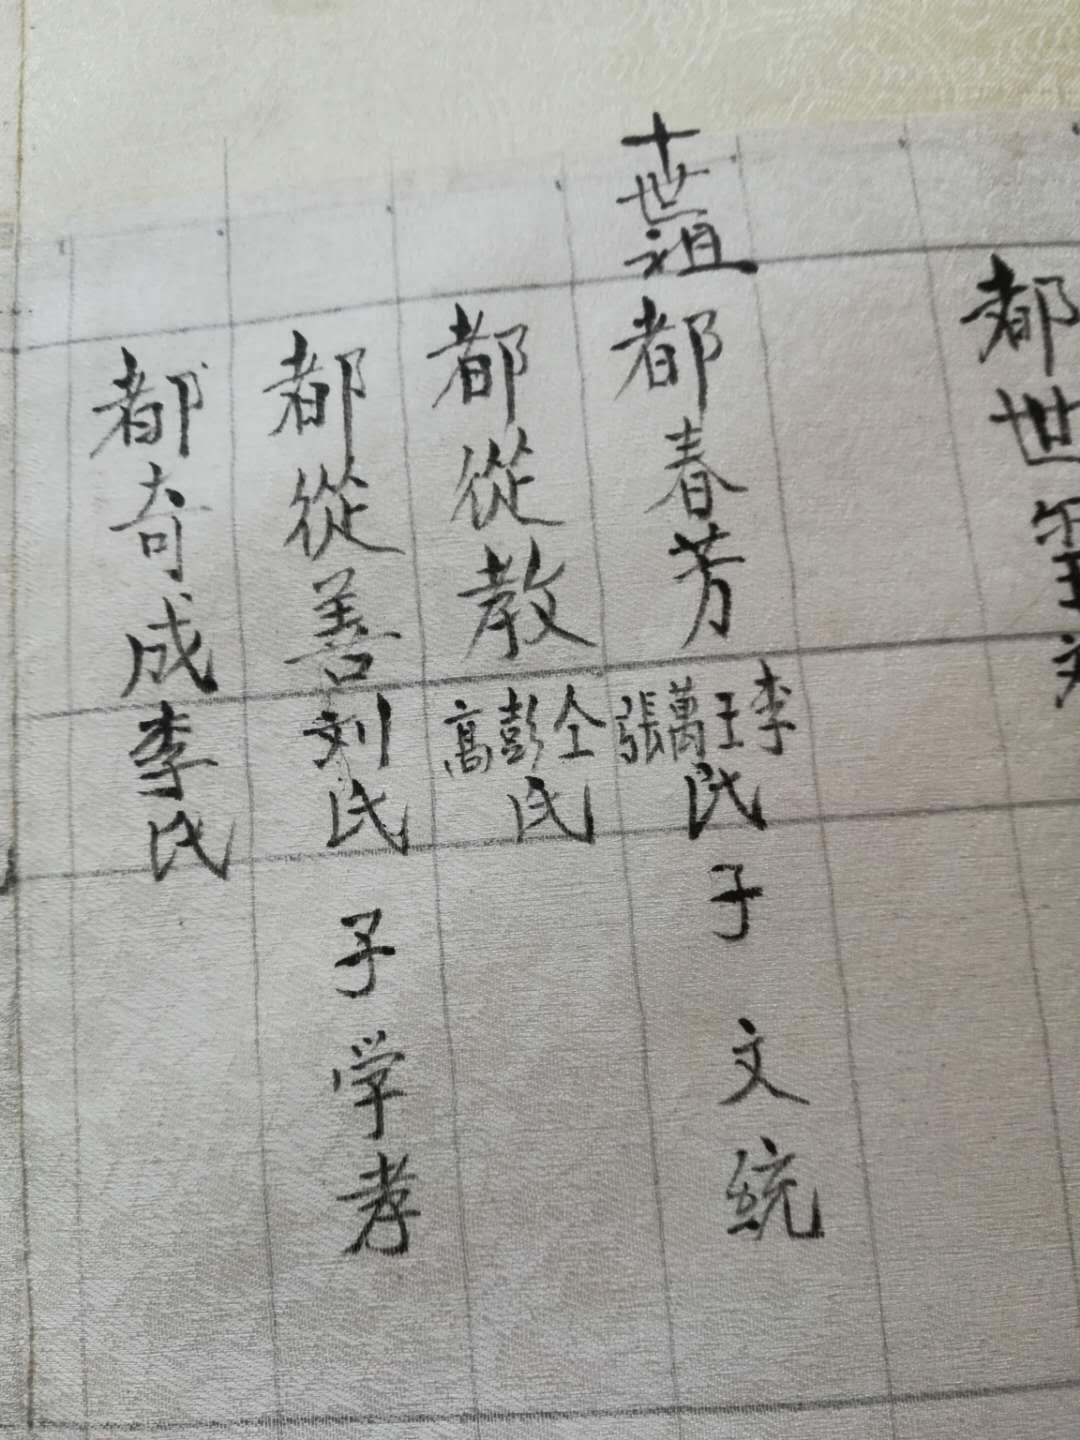 都世
十世祖
都春芳
李王萬張氏
子文統
都從教
仝彭高氏
都從善
刘氏
子学孝
都奇成
李氏